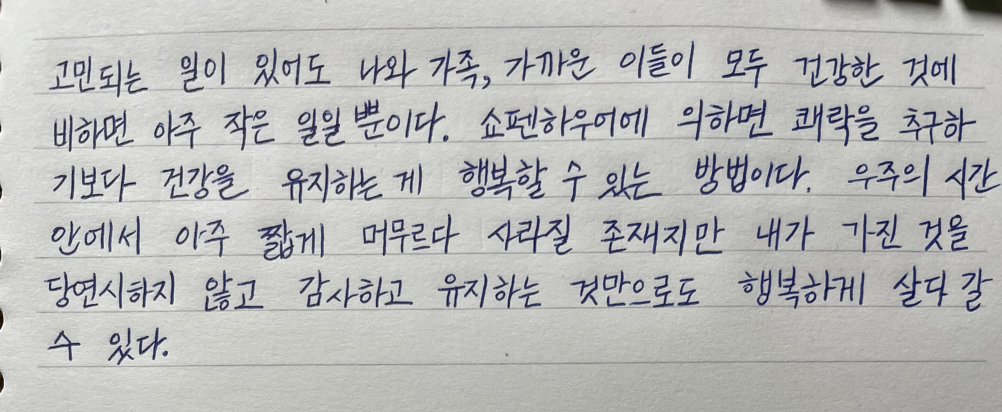 고민되는 일이 있어도 나와 가족, 가까운 이들이 모두 건강한 것에
비하면 아주 작은 일일 뿐이다. 쇼펜하우어에 의하면 쾌락을 추구하
기보다 건강을 유지하는 게 행복할 수 있는 방법이다. 우주의 시간
안에서 아주 짧게 머무르다 사라질 존재지만 내가 가진 것을
당연시하지 않고 감사하고 유지하는 것만으로도 행복하게 살다 갈
수 있다.